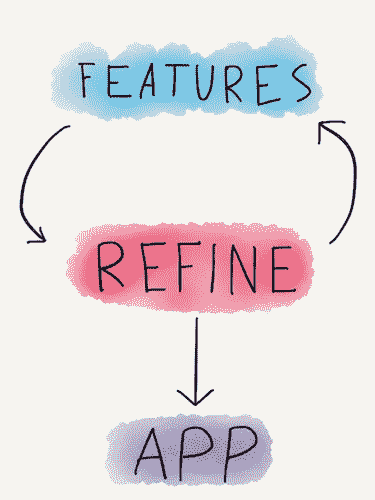 FEATURES
REFINE
APP